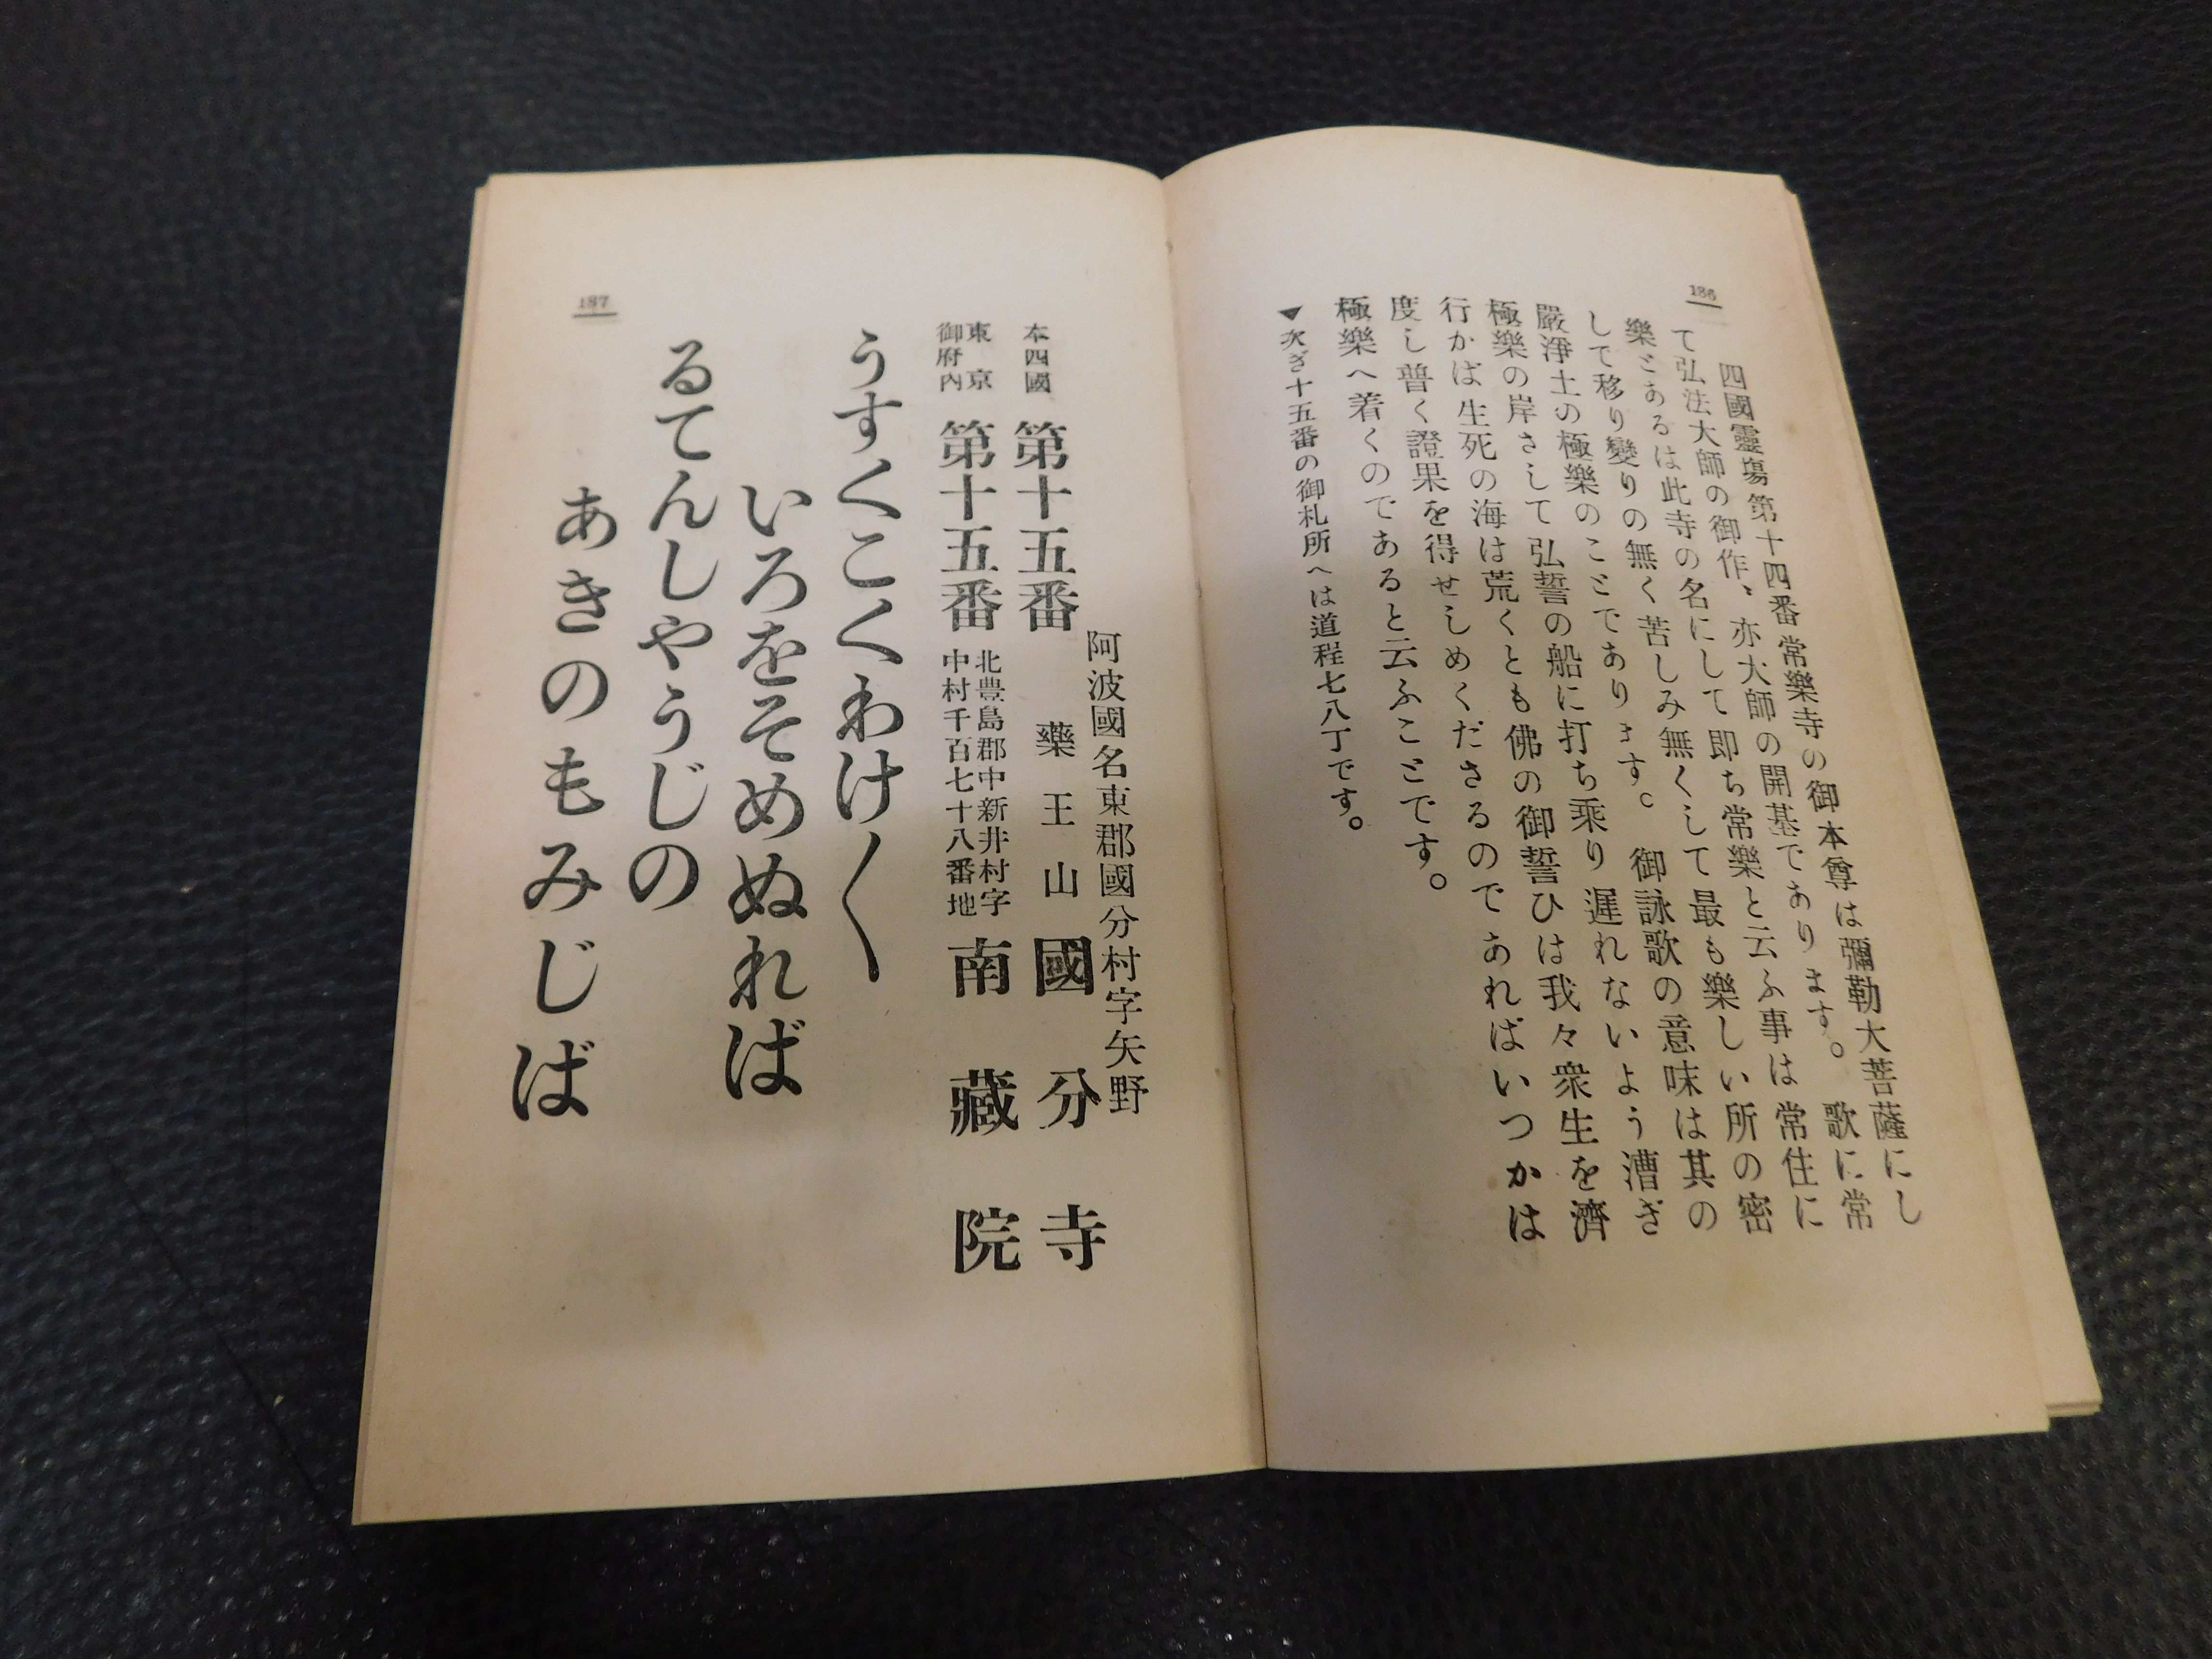 186
四國靈場第十四番常樂寺の御本尊は彌勒大菩薩にし
て弘法大師の御作、亦大師の開基であります。歌に常
樂とあるは此寺の名にして即ち常樂と云ふ事は常住に
して移り變りの無く苦しみ無くして最も樂しい所の密
嚴淨土の極樂のことであります。御詠歌の意味は其の
極樂の岸さして弘誓の船に打ち乘り遲れないよう漕ぎ
行かば生死の海は荒くとも佛の御誓ひは我々衆生を濟
度し普く證果を得せしめくださるのであればいつかは
極樂へ着くのであると云ふことです。
▼次ぎ十五番の御札所へは道程七八丁です。
阿波國名東郡國分村字矢野
本四國 第十五番 藥王山 國分寺
東京御府内 第十五番 北豊島郡中新井村字中村千百七十八番地 南藏院
うすくこくわけ〱
いろをそめぬれば
るてんしやうじの
あきのもみじば
187